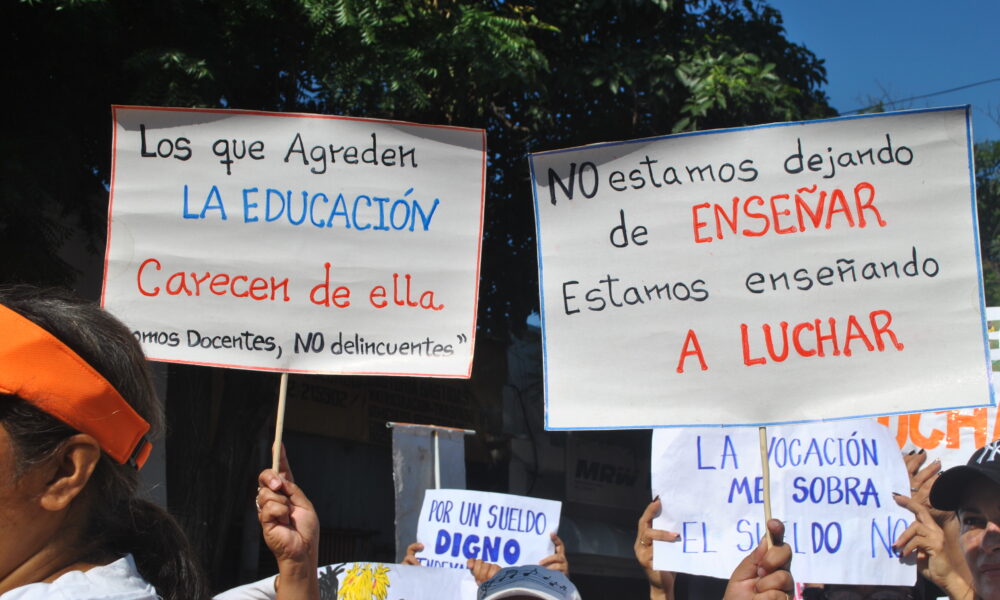 Los que Agreden
LA EDUCACIÓN
Carecen de ella.
omos Docentes, NO delincuentes"
NO estamos dejando
de ENSEÑAR
Estamos enseñando
A LUCHAR
POR UN SUELDO
DIGNO
LA VOCACIÓN
ME SOBRA
EL SUELDO NO
MRW